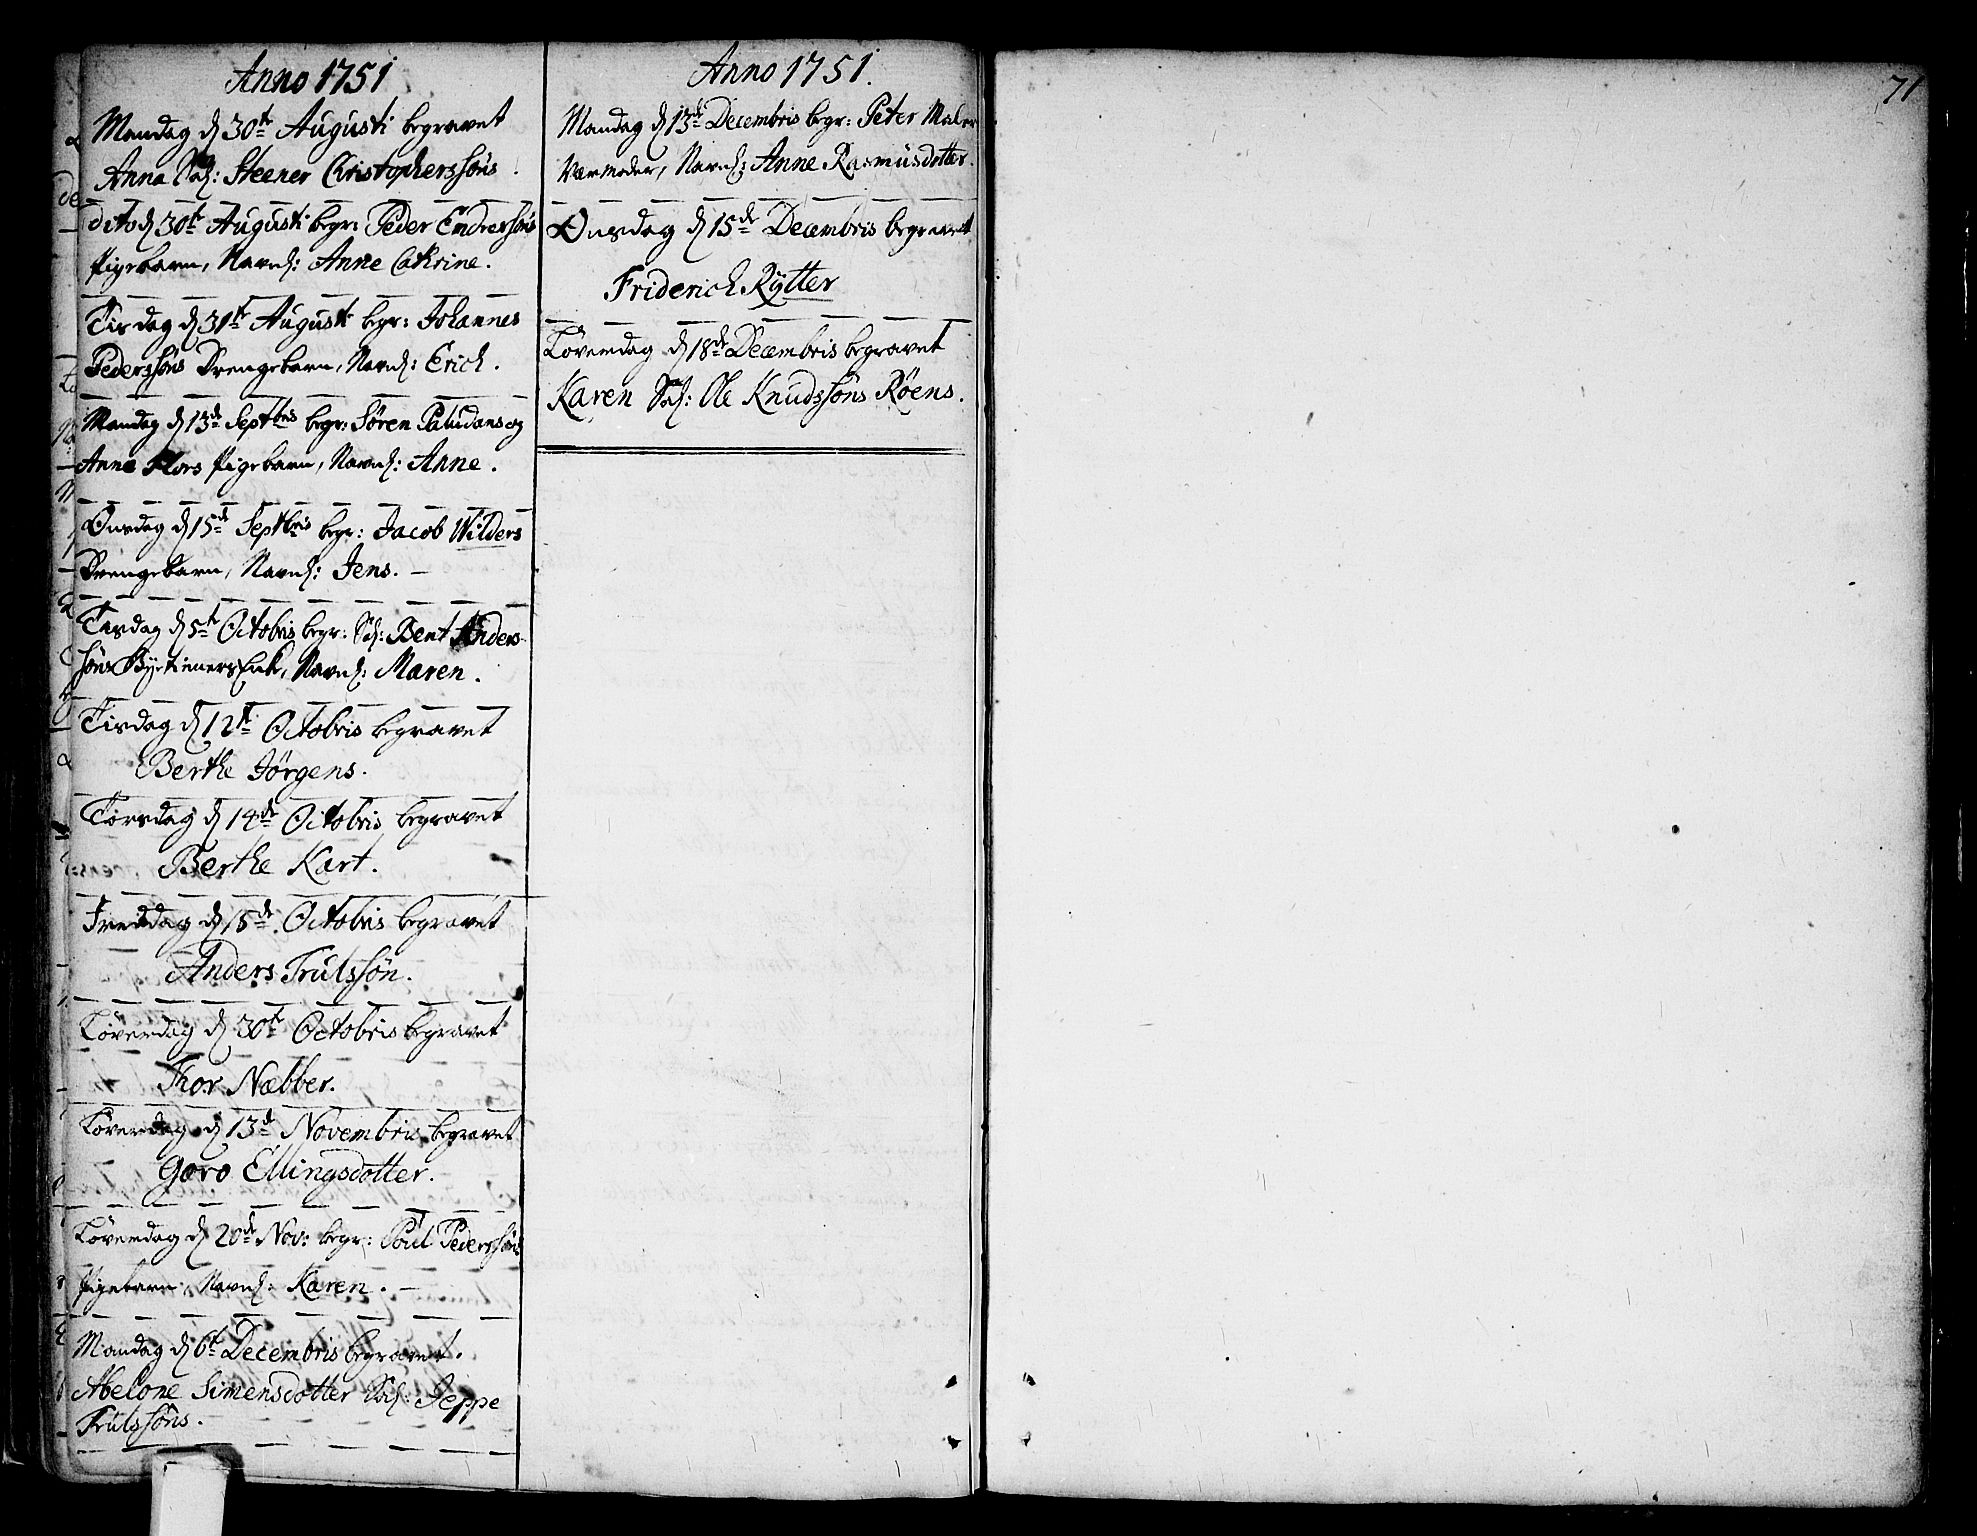 Anno 1751
Mandag d 30te Augusti begravet
Anna Sal: Steener Christopherssøns
dito d 30te Augusti begr: Peder Endressøns
Pigebarn, Navnl: Anne Cathrine.
Tirsdag d 31te Augusti begr: Johannes
Pederssøns Drengebarn, Navnl: Erich.
Mandag d 13de Septbris begr: Søren Paludans og
Anne Flors Pigebarn, Navnl: Anne.
Onsdag d 15de Septbris begr: Jacob Wilders
Drengebarn, Navnl: Jens. —
Tirsdag d 5te Octobris begr: Sal: Bent Anders-
søns Enke, Navnl: Maren.
Tirsdag d 12te Octobris begravet
Berthe Jørgens.
Torsdag d 14de Octobris begravet
Berthe Kart.
Fredag d 15de Octobris begravet
Anders Trulssøn.
Løverdag d 30te Octobris begravet
Thor Næbber.
Løverdag d 13de Novembris begravet
Goro Ellingsdotter.
Løverdag d 20de Nov: begr: Poul Pederssøns
Pigebarn, Navnl: Karen. —
Mandag d 6te Decembris begravet.
Abelone Simensdotter Sal: Jeppe
Trulssøns.
Anno 1751.
Mandag d 13de Decembris begr: Peter Maler
Værmoder, Navnl: Anne Rasmusdotter.
Onsdag d 15de Decembris begravet
Friderich Rytter
Løverdag d 18de Decembris begravet
Karen Sal: Ole Knudssøns Røens.
71